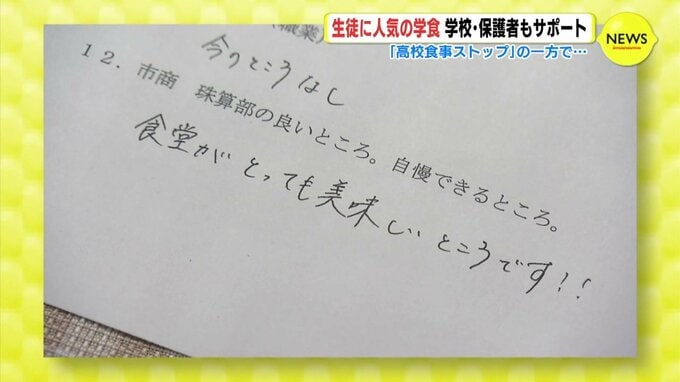 生徒に人気の学食 学校・保護者もサポート
「高校食事ストップ」の一方で…
NEWS
今のところなし
12．市商 珠算部の良いところ。自慢できるところ。
食堂がとっても美味しいところです!!